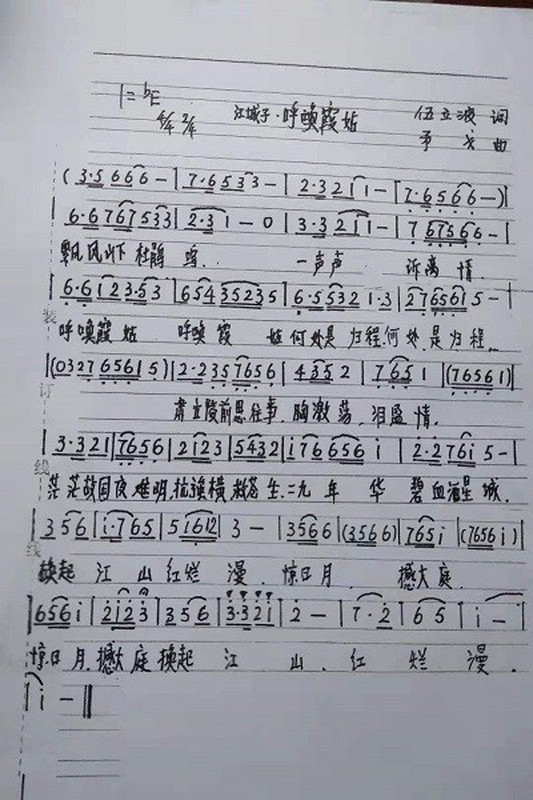 1=♭E
4/4 2/4
江城子·呼唤霞姑 伍立波 词
予戈 曲
(3·5 6 6 6 - | 7·6 5 3 3 - | 2·3 2 1 1 - | 7·6 5 6 6 -)|
6·6 7 6 7 5 3 3 | 2·3 1 - 0 | 3·3 2 1 1 - | 7 6 7 5 6 6 - |
飘风山下 杜鹃 鸣. 一声声 诉离情.
6·6 1 2 3·5 3 | 6 5 4 3 5 2 3 5 | 6·5 5 3 2 1·3 | 2 7 6 5 6 1 5 - |
装
呼唤霞姑 呼唤霞 姑何处是 归程.何处是归程.
|(0 3 2 7 6 5 6 1 5)| 2·2 3 5 7 6 5 6 | 4 3 5 2 | 7 6 5 1 |(7 6 5 6 1)|
订
肃立陵前思往事,胸激荡,泪盈情.
| 3·3 2 1 | 7 6 5 6 | 2 1 2 3 | 5 4 3 2 | i 7 6 6 5 6 i | 2·2 7 6 i 5 - |
线
茫茫故国夜难明,抗强横,救苍生.二九年华 碧血洒星城.
| 3 5 6 | i·7 6 5 | 5 i 6 i 2 | 3 - | 3 5 6 6 |(3 5 6 6)| 7 6 5 i |(7 6 5 6 i)|
线
换起 江 山红烂 漫. 惊日月. 撼大庭
| 6 5 6 i | 2 i 2 3 | 3 5 6 | 3·3 2 i | 2 - | 7·2 | 6 5 | i - |
惊日月.撼大庭换起 江 山.红 烂 漫.
| i - ‖